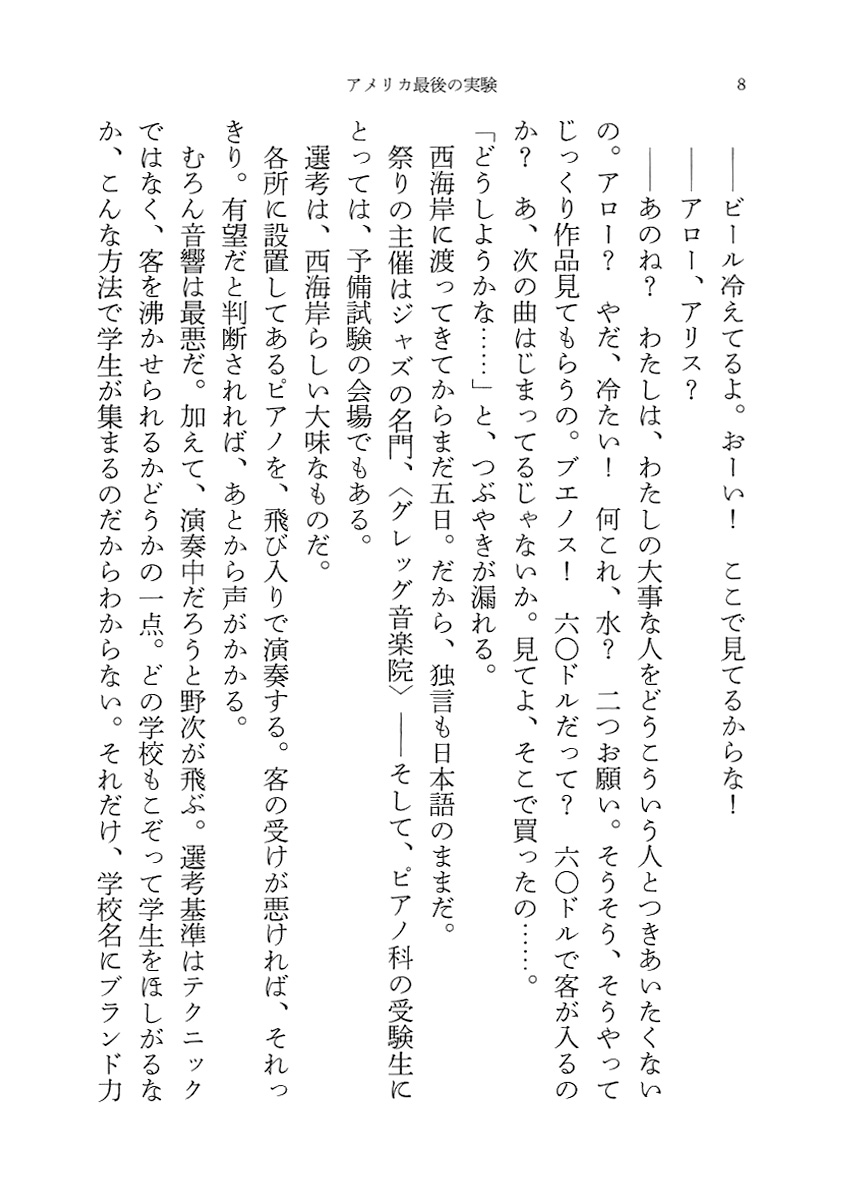 アメリカ最後の実験
8
――ビール冷えてるよ。おーい！　ここで見てるからな！
――アロー、アリス？
――あのね？　わたしは、わたしの大事な人をどうこういう人とつきあいたくない
の。アロー？　やだ、冷たい！　何これ、水？　二つお願い。そうそう、そうやって
じっくり作品見てもらうの。ブエノス！　六〇ドルだって？　六〇ドルで客が入るの
か？　あ、次の曲はじまってるじゃないか。見てよ、そこで買ったの……。
「どうしようかな……」と、つぶやきが漏れる。
西海岸に渡ってきてからまだ五日。だから、独言も日本語のままだ。
祭りの主催はジャズの名門、〈グレッグ音楽院〉――そして、ピアノ科の受験生に
とっては、予備試験の会場でもある。
選考は、西海岸らしい大味なものだ。
各所に設置してあるピアノを、飛び入りで演奏する。客の受けが悪ければ、それっ
きり。有望だと判断されれば、あとから声がかかる。
むろん音響は最悪だ。加えて、演奏中だろうと野次が飛ぶ。選考基準はテクニック
ではなく、客を沸かせられるかどうかの一点。どの学校もこぞって学生をほしがるな
か、こんな方法で学生が集まるのだからわからない。それだけ、学校名にブランド力